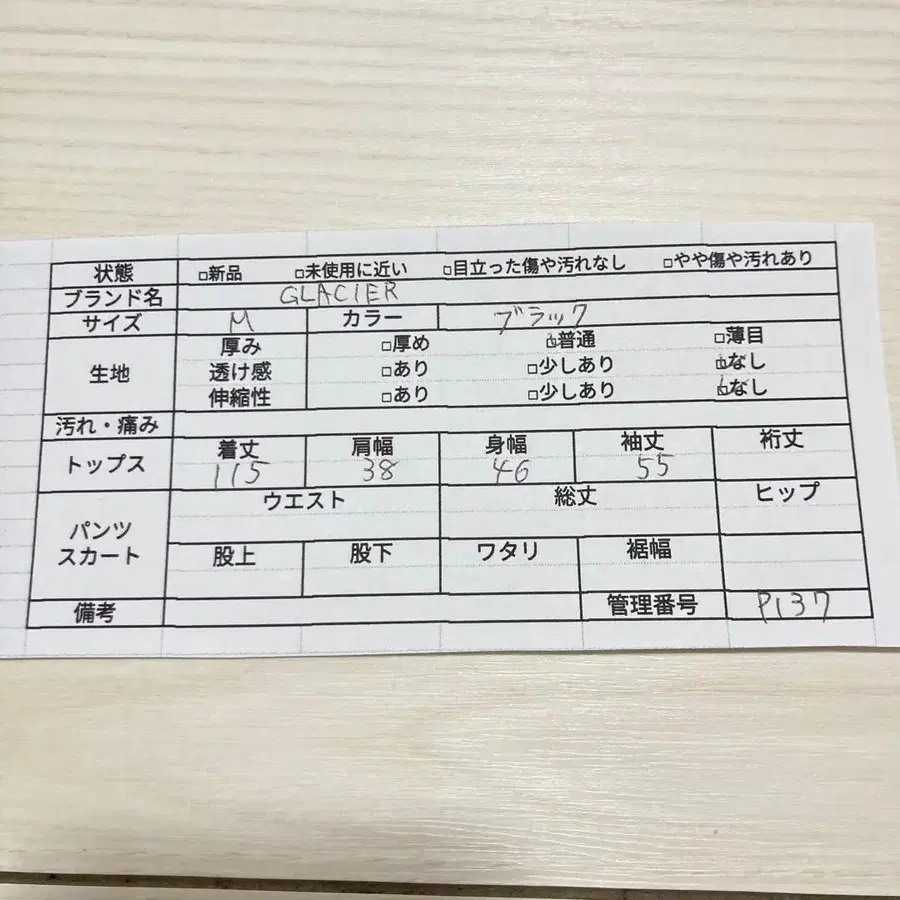 状態 □新品 □未使用に近い □目立った傷や汚れなし □やや傷や汚れあり
ブランド名 GLACIER
サイズ M カラー ブラック
生地 厚み □厚め □普通 □薄目
透け感 □あり □少しあり □なし
伸縮性 □あり □少しあり □なし
汚れ・痛み
トップス 着丈 肩幅 身幅 袖丈 裄丈
115 38 46 55
パンツ スカート ウエスト 総丈 ヒップ
股上 股下 ワタリ 裾幅
備考 管理番号 P137